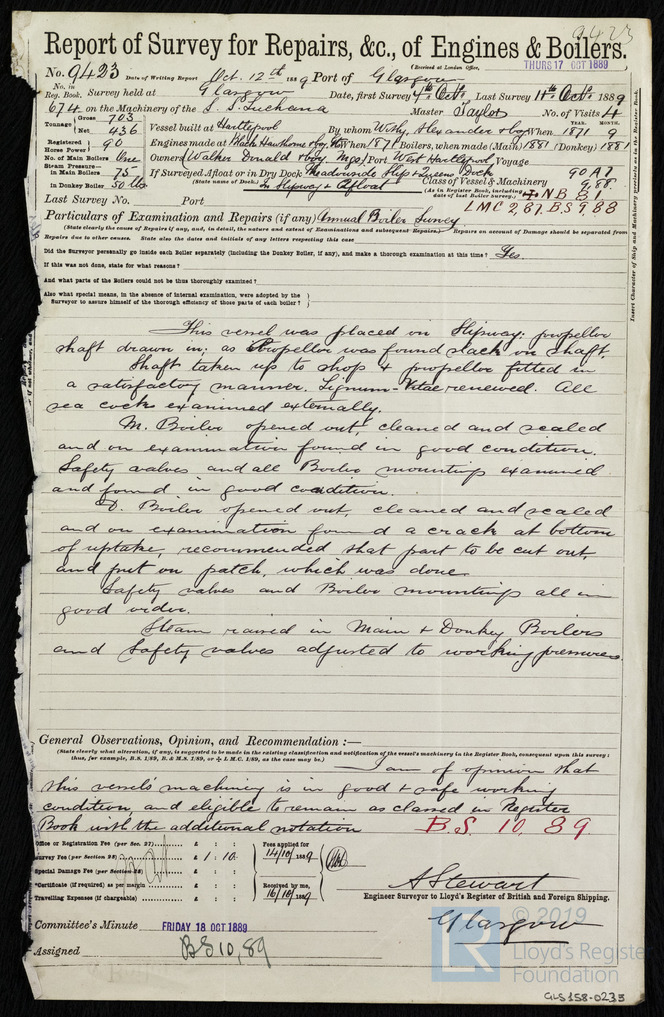 9423
Report of Survey for Repairs, &c., of Engines & Boilers.
(Received at London Office,
THURS 17 OCT 1889
No. 9423 Date of Writing Report Oct. 12th 1889 Port of Glasgow
No. in Reg. Book. Survey held at Glasgow Date, first Survey 4th Oct. Last Survey 11th Oct. 1889
674 on the Machinery of the S.S. Luchana Master Taylor No. of Visits 4
Tonnage Gross 703
Net 436
Vessel built at Hartlepool By whom Withy, Alexander & Coy When 1871 9
YEAR. MONTH.
Registered Horse Power 90 Engines made at When 1871 Boilers, when made (Main) 1881 (Donkey) 1881
No. of Main Boilers One Owners Walker Donald & Coy Port West Hartlepool Voyage
Steam Pressure—
in Main Boilers 75 If Surveyed Afloat or in Dry Dock Meadowside Slip & Queens Dock
(State name of Dock.) On Slipway & Afloat
in Donkey Boiler 50 lbs
Class of Vessel & Machinery 90 A1
(As in Register Book, including date of last Boiler Survey.) 9,88
NB 81
LMC 2,87. B.S 9,88
Last Survey No. Port
Particulars of Examination and Repairs (if any) Annual Boiler Survey
(State clearly the cause of Repairs if any, and, in detail, the nature and extent of Examinations and subsequent Repairs.) Repairs on account of Damage should be separated from
Repairs due to other causes. State also the dates and initials of any letters respecting this case
Did the Surveyor personally go inside each Boiler separately (including the Donkey Boiler, if any), and make a thorough examination at this time? Yes.
If this was not done, state for what reasons?
And what parts of the Boilers could not be thus thoroughly examined?
Also what special means, in the absence of internal examination, were adopted by the
Surveyor to assure himself of the thorough efficiency of those parts of each boiler?
Insert Character of Ship and Machinery precisely as in the Register Book.
This vessel was placed on Slipway; propellor
shaft drawn in; as Propellor was found slack on shaft.
Shaft taken up to shop & propellor fitted in
a satisfactory manner. Lignum-Vitae renewed. All
sea cock examined externally.
M. Boiler opened out, cleaned and scaled
and on examination found in good condition.
Safety valves and all Boiler mountings examined
and found in good condition.
D. Boiler opened out, cleaned and scaled
and on examination found a crack at bottom
of uptake, recommended that part to be cut out,
and put on patch, which was done.
Safety valves and Boiler mountings all in
good order.
Steam raised in Main & Donkey Boilers
and Safety valves adjusted to working pressures.
General Observations, Opinion, and Recommendation :—
(State clearly what alteration, if any, is suggested to be made in the existing classification and notification of the vessel's machinery in the Register Book, consequent upon this survey;
thus, for example, B.S. 1/89, B. & M.S. 1/89, or ✠ L.M.C. 1/89, as the case may be.)
I am of opinion that
this vessel's machinery is in good & safe working
condition, and eligible to remain as classed in Register
Book with the additional notation B.S. 10. 89.
Office or Registration Fee (per Sec. 27) £ : :
Survey Fee (per Section 28) £ 1 : 10 :
Special Damage Fee (per Section 28) £ : :
*Certificate (if required) as per margin £ : :
Travelling Expenses (if chargeable) £ : :
Fees applied for
14/10/1889
Received by me,
16/10/1889
A Stewart
Engineer Surveyor to Lloyd's Register of British and Foreign Shipping.
Glasgow
Committee's Minute FRIDAY 18 OCT 1889
Assigned BS 10,89
© 2019
LR
Lloyd's Register
Foundation
GLS158-0233